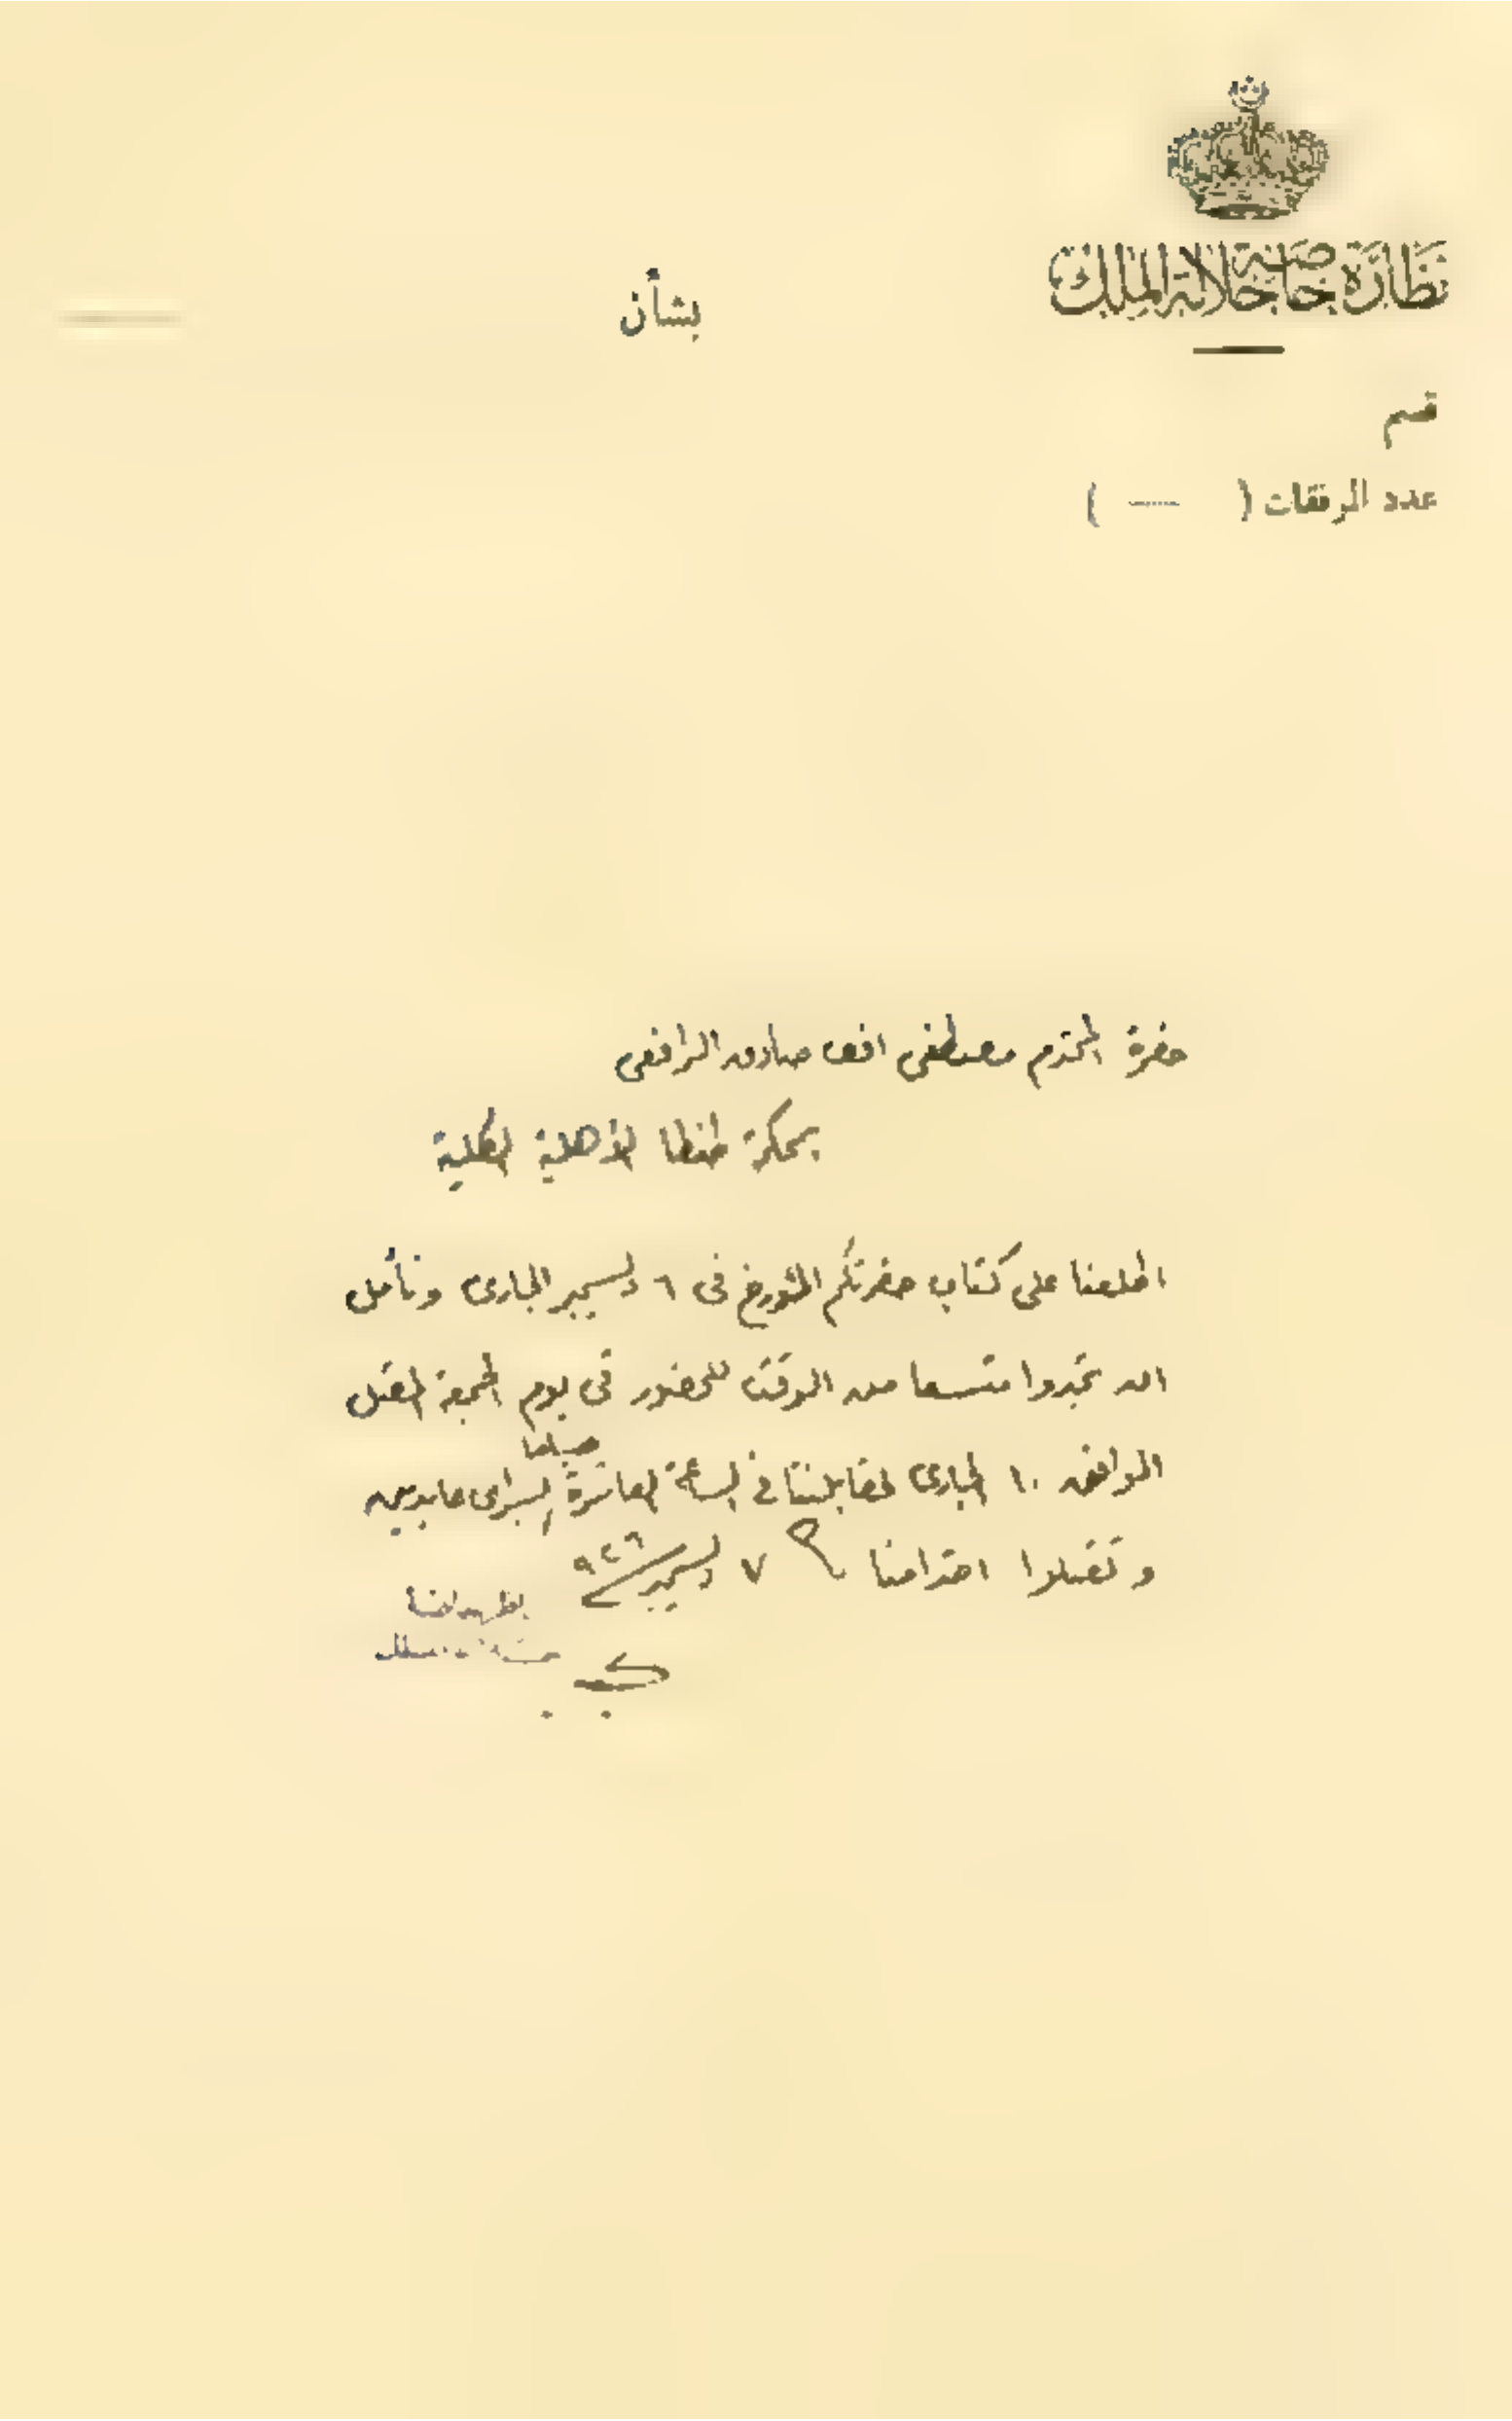 نظارة خاصة جلالة الملك
بشأن
قسم
عدد المرفقات ( — )
حضرة المحترم مصطفى افندى صادق الرافعى
بمحكمة طنطا الأهلية الكلية
اطلعنا على كتاب حضرتكم المؤرخ فى ٦ ديسمبر الجارى ونأمل
ان تجدوا متسعا من الوقت للحضور فى يوم الجمعة المقبل
الموافق ١٠ الجارى لمقابلتنا فى الساعة العاشرة صباحا بسراى عابدين
وتفضلوا احترامنا ٧ ديسمبر ٩٢٦